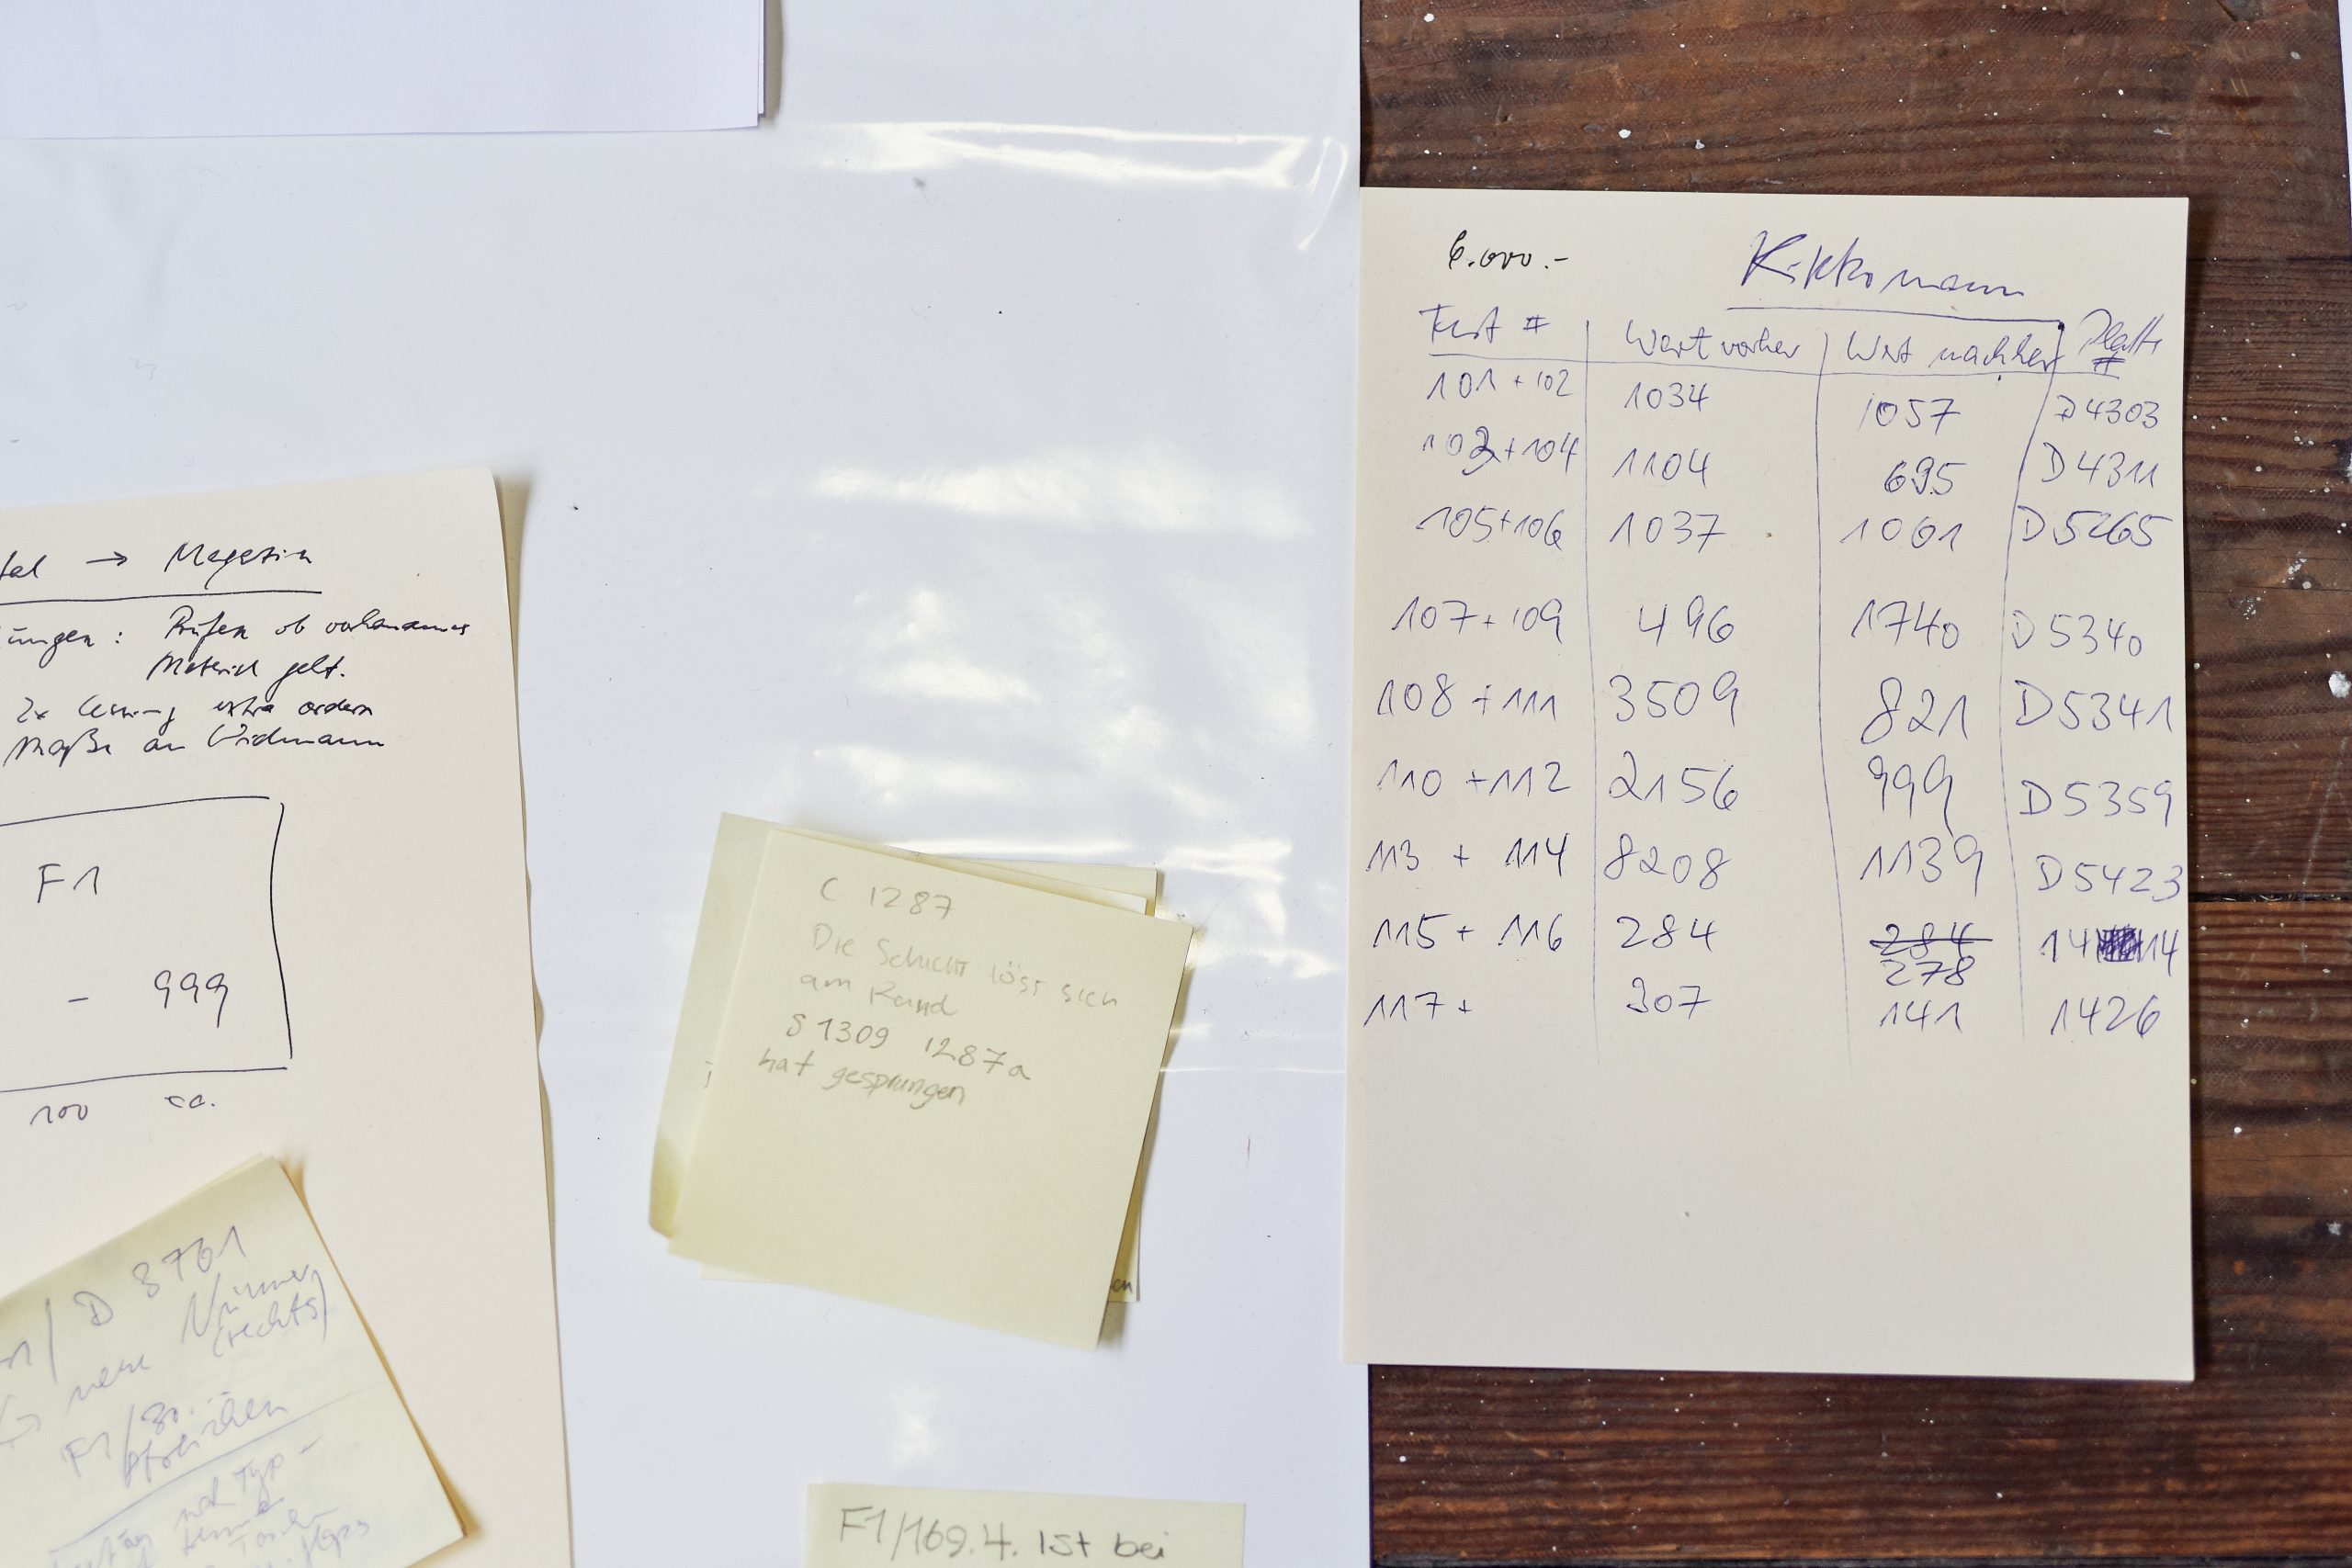 → Magazin
ungen: Prüfen ob vorhandenes
Material geht.
2x extra ordern
Maße an Widmann
F1
- 999
100 ca.
D 8761
neue Nummer
(rechts)
F1/30...
streichen
nach Typ-
C 1287
Die Schicht löst sich
am Rand
S 1309 1287a
hat gesprungen
en
F1/169.4. Ist bei
6.000.-
Kikkomann
Test # Wert vorher Wert nachher Platte #
101 + 102 1034 1057 D4303
103+104 1104 695 D4311
105+106 1037 1061 D5265
107+109 496 1740 D5340
108+111 3509 821 D5341
110+112 2156 999 D5359
113 + 114 8208 1139 D5423
115 + 116 284 284 14 14
278
117+ 307 141 1426